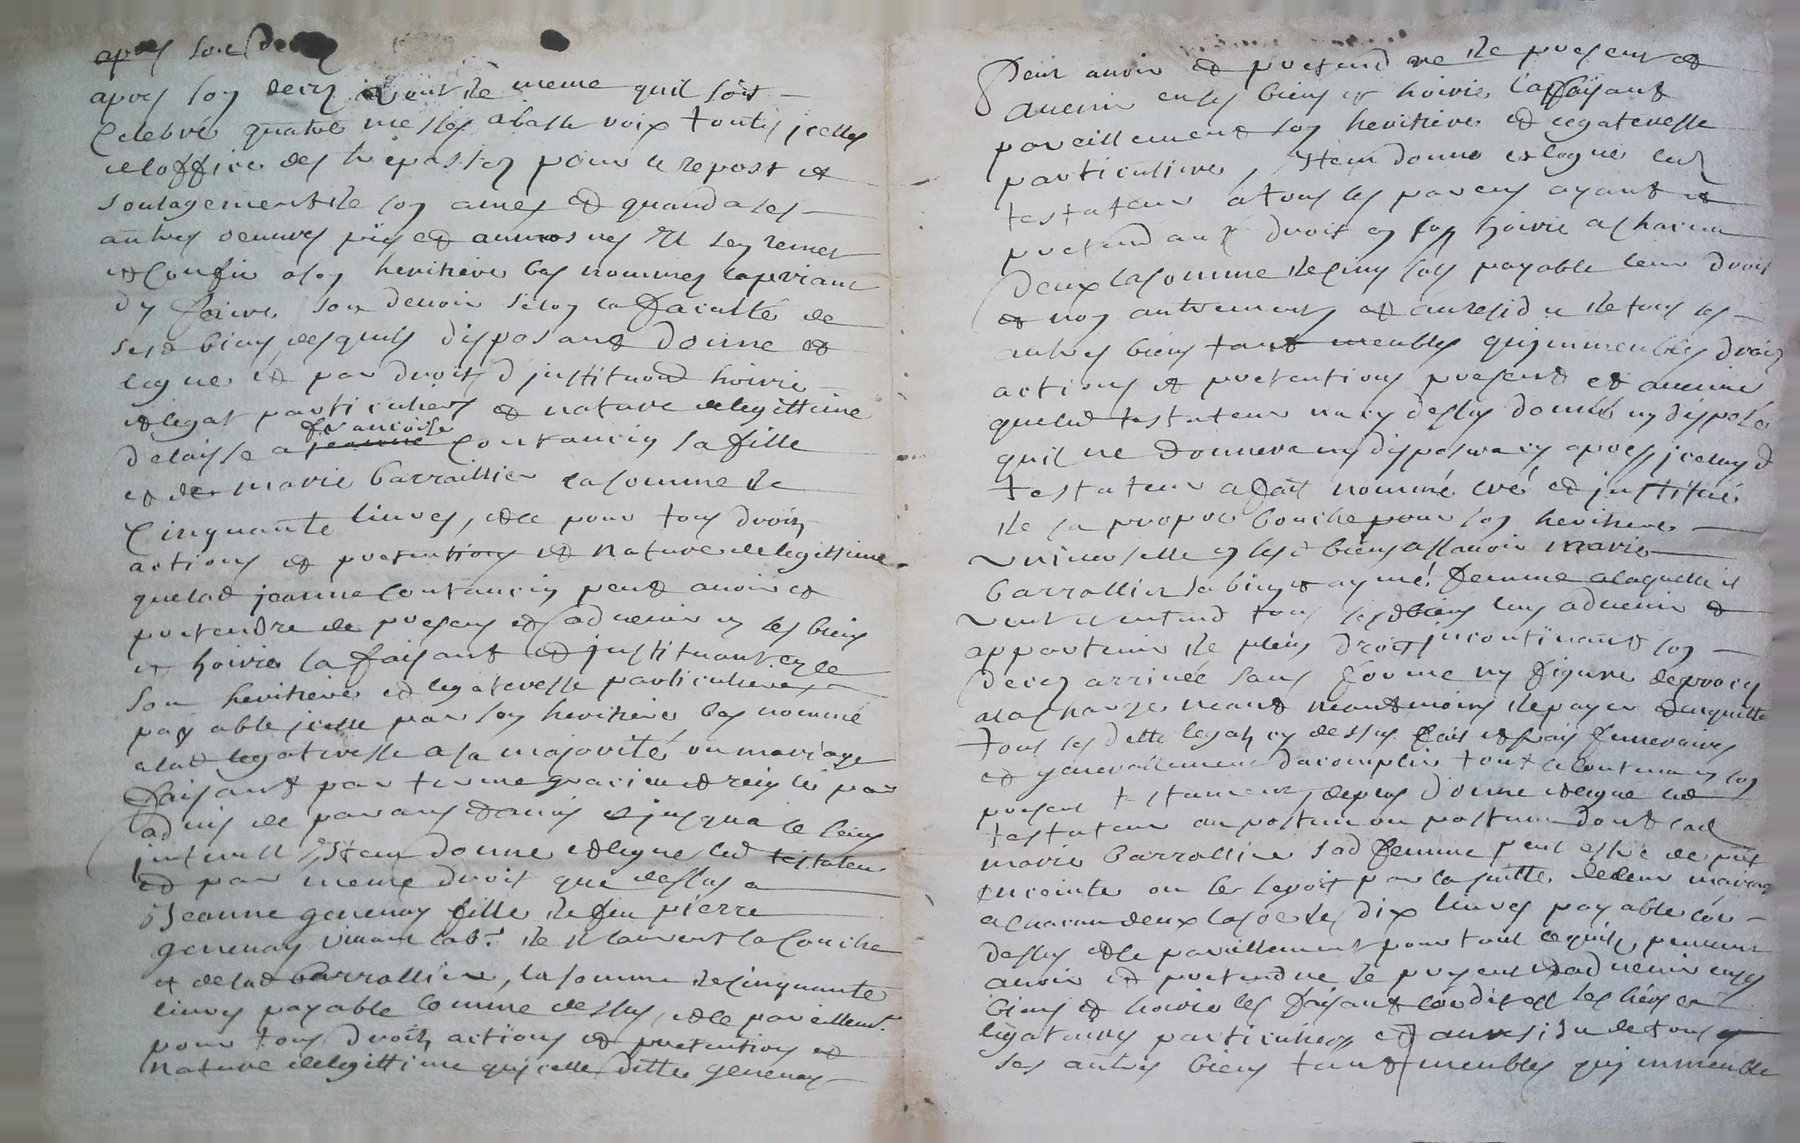 apres son
apres son deces veut de meme quil soit
Celebré quatre messes a basse voix toutes jcelles
de loffice des trepasses pour le repost et
soulagement de son ames et quand a ses
autres oeuures pies et aumosnes Il sen remet
et Confie a son heritiere bas nommes la priant
dy faire son deuoir selon la faculté de
sesd biens desquels disposant donne et
legue et par droit d justitution hoirie
et legat particuliers et nature de legittime
francoise
delaisse a jeanne Contancin sa fille
et de marie barraillier la somme de
Cinquante liures, et ce pour tous droits
actions et pretentions et nature de legittime
que lad jeanne Contancin peut auoir et
pretendre de presens et aduenir en ses biens
et hoirie la faisant et justituant en ce
son heritiere et legateresse particuliere
payable jcelle par son heritiere bas nommé
a lad legateresse a sa majorité ou mariage
faisant par terme gracieux et reiglés par
aduis de parans et amis et jusqua ce sans
interest, Item donne et legue led testateur
et par meme droit que dessus a
Jeanne genenay fille de feu pierre
genenay viuant labr. de st laurent la Conche
et de lad barrallier, la somme de Cinquante
liures payable Comme dessus, et ce pareillemt.
pour tous droits actions et pretentions et
nature de legittime qujcelle ditte genenay
Peut auoir et pretendre de present et
auenir en ses biens et hoirie la faisant
pareillement son heritiere et legateresse
particuliere, Item donne et legue led
testateur a tous les parens ayant et
pretendant droit en son hoirie a chacun
deux la somme de Cinq sols payable leur droit
et non autrement et au residu de tous ses
autres biens tant meubles qujmmeubles droits
actions et pretentions present et auenir
que led testateur na cy dessus donné ny disposé
quil ne donnera ny disposera cy apres jceluy d
testateur a fait nommé cré et justitué
de sa propre bouche pour son heritiere
vniuerselle en sesd biens assauoir marie
barrallier sa bien aymé femme a laquelle il
veut et entend tous sesd biens luy aduenir et
appartenir de plein droit jncontinant son
deces arriuée sans forme ny figure de proces
a la charge neantmoins de payer et acquitter
tous ses dette legats cy dessus fait et frais funeraires
et generallement dacomplir tout le Contenu en son
present testament, de plus donne et legue led
testateur au postume ou postume dont lad
marie barrallier sad femme peut estre de put
enceinte ou le seroit par la suitte de leur mariage
a chacun deux la some de dix liures payable Co
dessus et ce pareillement pour tout ce quils peuuent
auoir et pretendre de present et aduenir en ses
biens et hoirie les faisant
legataires particuliers et au residu de tous
ses autres biens tant meubles quj immeuble